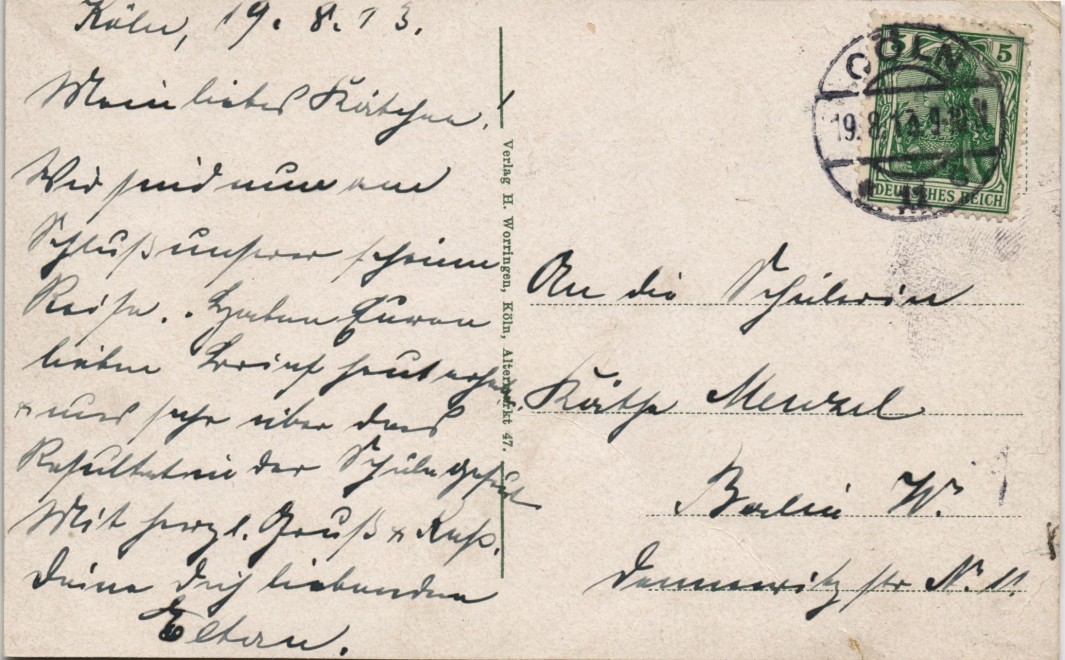 Köln, 19. 8. 13.
Mein liebes Kätchen!
Wir sind nun am
Schluß unserer schönen
Reise. Haben Euren
lieben Brief heut erhalt.
& uns sehr über das
Resultat in der Schule gefreut
Mit herzl. Gruß & Kuß.
Deine Dich liebenden
Eltern.
Verlag H. Worringen, Köln, Altermarkt 47.
5 5
DEUTSCHES REICH
CÖLN
19. 8. 13. 9-10 N
11
An die Schülerin
Käthe Menzel
Berlin W.
Dennewitzstr N. 11.